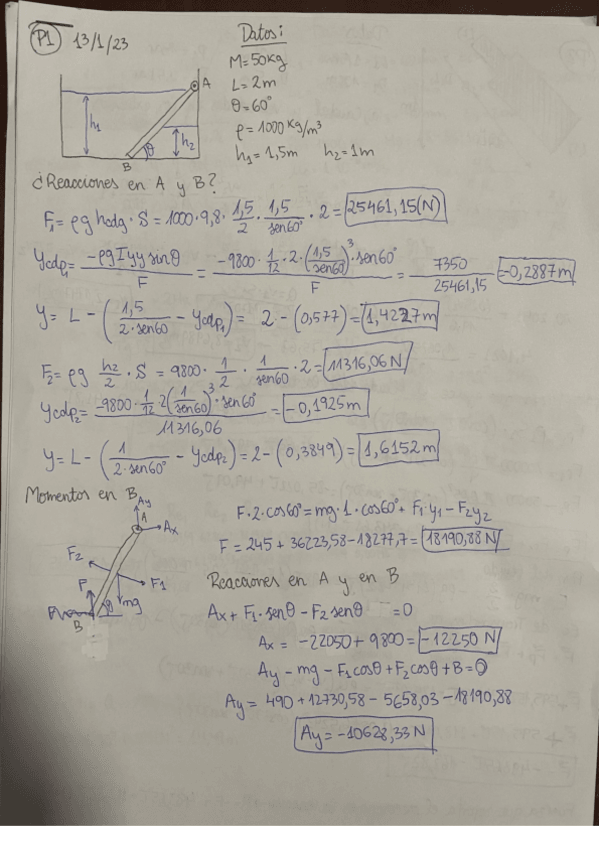 P1 13/1/23
Datos:
M=50Kg
L=2m
θ=60°
ρ=1000 Kg/m³
h₁=1,5m h₂=1m
A
h₁
h₂
θ
B
¿Reacciones en A y B?
F₁= ρg hcdg · S = 1000·9,8· 1,5/2 · 1,5/sen60° · 2 = 25461,15(N)
Ycdp₁ = -ρg Iyy sinθ/F = -9800· 1/12 ·2·(1,5/sen60°)³·sen60°/F = 7350/25461,15 = -0,2887m
Y= L - (1,5/2·sen60 - Ycdp₁) = 2-(0,577) = 1,4227m
F₂= ρg h₂/2 · S = 9800· 1/2 · 1/sen60 ·2 = 11316,06N
Ycdp₂ = -9800· 1/12 ·2(1/sen60)³·sen60°/11316,06 = -0,1925m
Y= L - (1/2·sen60° - Ycdp₂) = 2-(0,3849) = 1,6152m
Momentos en B
Ay
A
Ax
F₂
F₁
P
mg
θ
B
F·2·cos60°=mg·1·cos60°+ F₁·y₁-F₂y₂
F = 245 + 36223,58-18277,7 = 18190,88N
Reacciones en A y en B
Ax + F₁·senθ - F₂senθ = 0
Ax = -22050 + 9800 = -12250 N
Ay - mg - F₁cosθ + F₂cosθ + B = 0
Ay = 490 + 12730,58 - 5658,03 - 18190,88
Ay = -10628,33 N